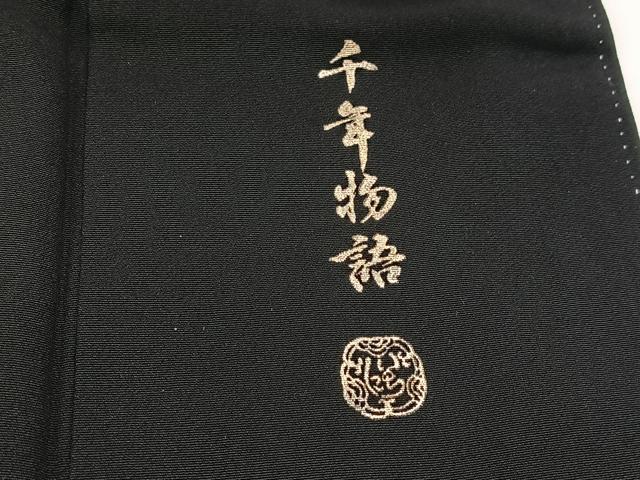 千年物語